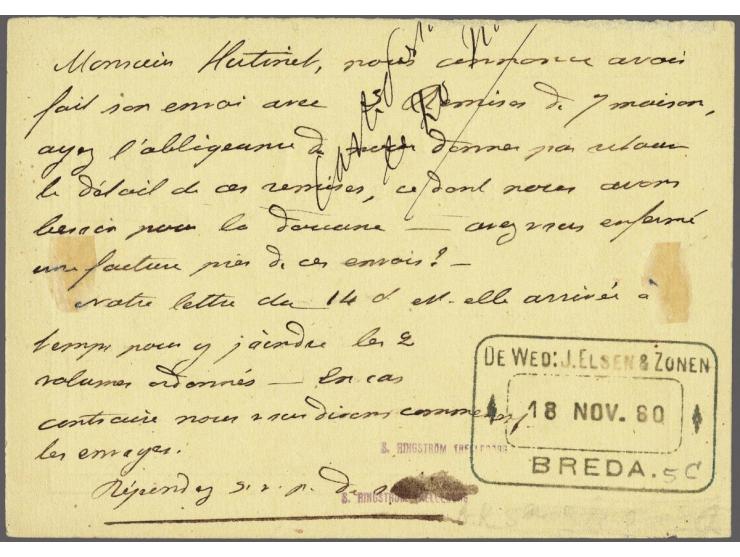 Monsieur Hutinet, nous annonce avoir
fait son envoi avec 3 remises de 7 maison,
ayez l'obligeance de donner par retour
le détail de ces remises, ce dont nous avons
besoin pour la douane — avez vous enfermé
une facture près de ces envois? —
Notre lettre du 14 ct est-elle arrivée à
temps pour y joindre les 2
volumes ordonnés — En cas
contraire nous vous disons comment
les envoyer.
Répondez s.v.p. de
DE WED: J. ELSEN & ZONEN
18 NOV. 80
BREDA.
5 C
S. RINGSTRÖM
S. RINGSTRÖM